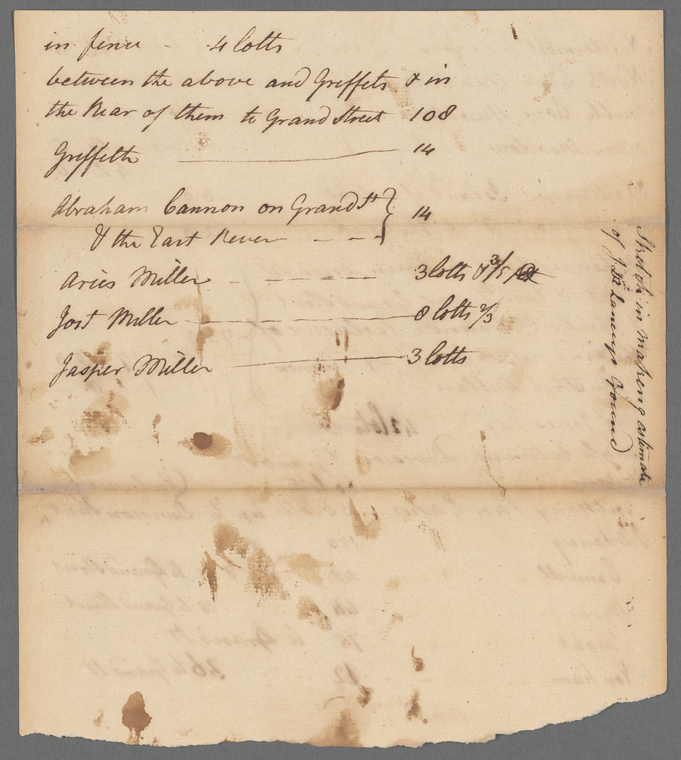 in fence - 4 lotts
between the above and Griffets & in
the Rear of them to Grand Street 108
Griffeth 14
Abraham Cannon on Grand St } 14
& the East River - - -
Aries Miller - - - - 3 lotts & 3/5
Jost Miller 8 lotts 2/3
Jasper Miller 3 lotts
Sketch in making estimate
of J. Delanceys Ground